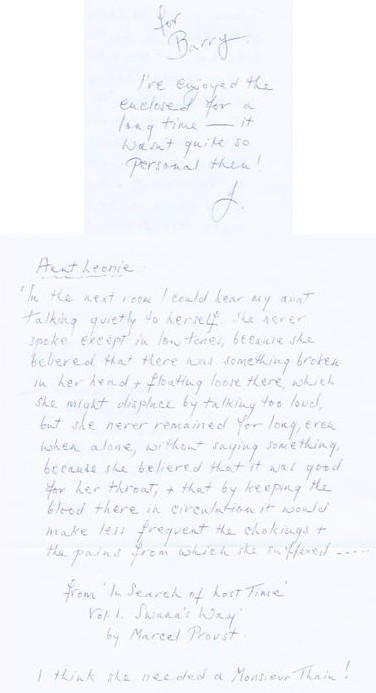 for
Barry
I've enjoyed the
enclosed for a
long time — it
wasn't quite so
personal then!
J.
Aunt Leonie
'In the next room I could hear my aunt
talking quietly to herself. She never
spoke except in low tones, because she
believed that there was something broken
in her head + floating loose there, which
she might displace by talking too loud,
but she never remained for long, even
when alone, without saying something,
because she believed that it was good
for her throat, + that by keeping the
blood there in circulation it would
make less frequent the chokings +
the pains from which she suffered .....
from 'In Search of Lost Time'
Vol. 1. Swann's Way
by Marcel Proust.
I think she needed a Monsieur Thain!